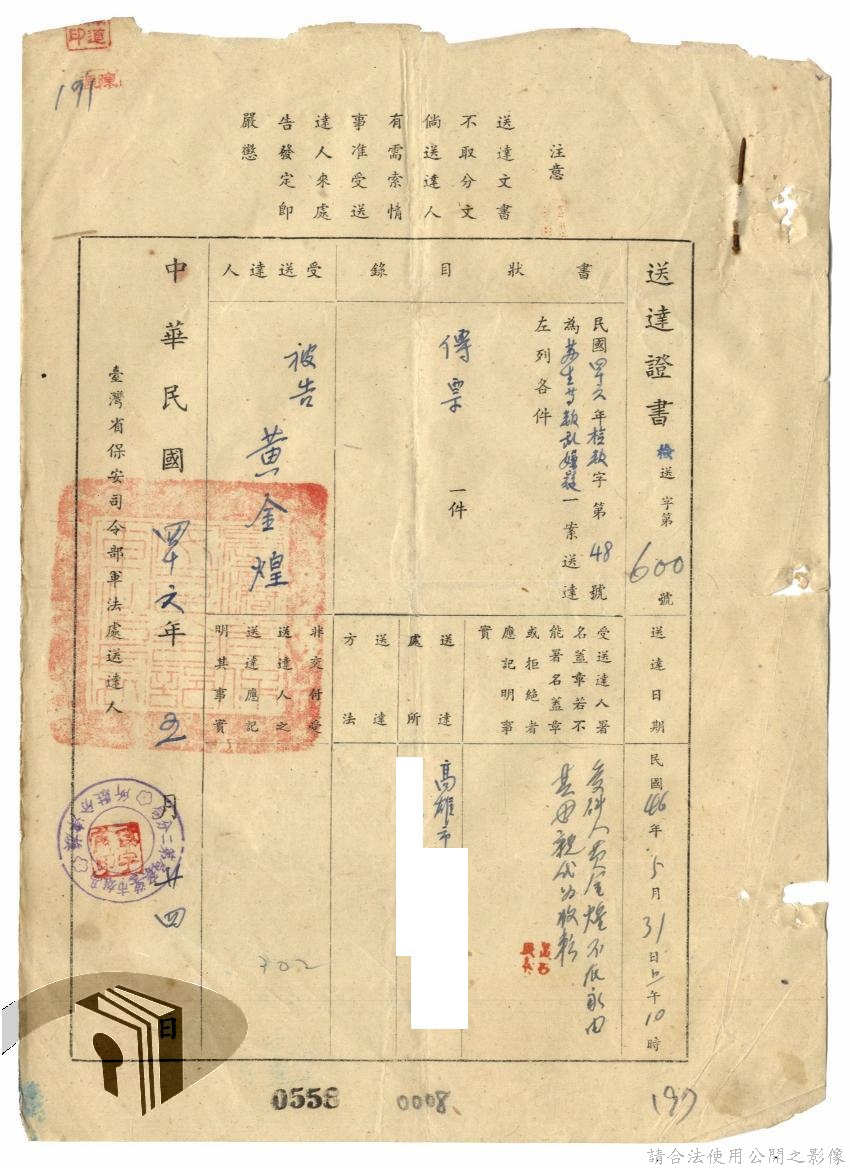 191
注意
送達文書
不取分文
倘送達人
有需索情
事准受送
達人來處
告發定即
嚴懲
送達證書 檢送字第600號
書狀目錄
民國四十六年檢叛字第48號
為
等叛亂嫌疑一案送達
左列各件
傳票 一件
受送達人
被告 黃金煌
送達日期
民國46年5月31日上午10時
受送達人署
名蓋章若不
能署名蓋章
或拒絕者
應記明事
實
受件人黃金煌不在家由
其母親代為收轉
送達處所
高雄市
送達方法
非交付受
送達人之
送達應記
明其事實
中華民國四十六年五月廿四日
臺灣省保安司令部軍法處送達人
302
0558
0008
197
請合法使用公開之影像